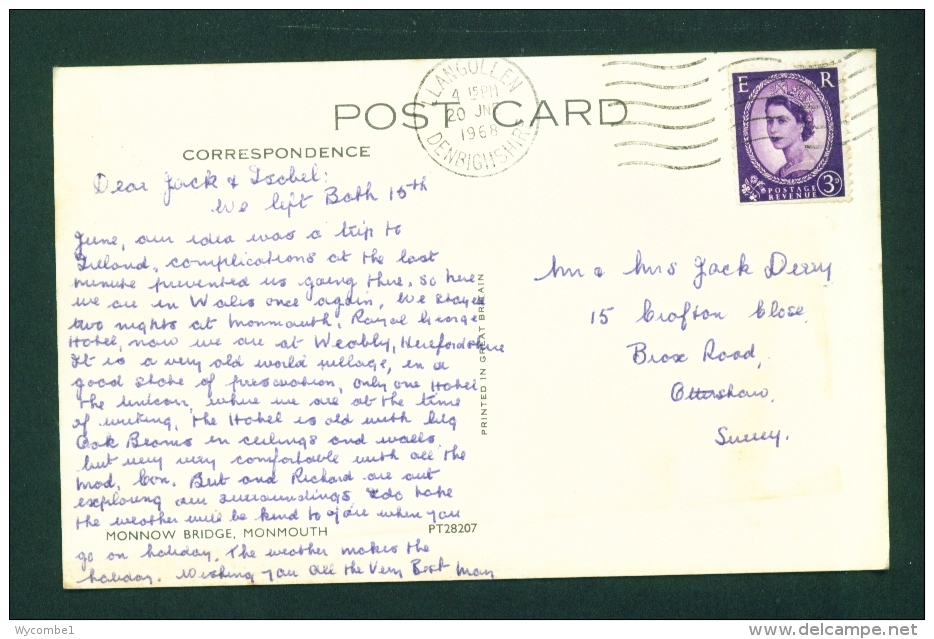 LLANGOLLEN
4 15PM
20 JNE
1968
DENBIGHSHIRE
E R
POSTAGE
REVENUE
3D
POST CARD
CORRESPONDENCE
Dear Jack & Isobel:
We left Bath 15th
June, our idea was a trip to
Ireland, complications at the last
minute prevented us going there. So here
we are in Wales once again, We stayed
two nights at Monmouth, Royal George
Hotel, now we are at Weobly, Herefordshire
It is a very old world village, in a
good state of preservation, only one Hotel
the Unicorn, where we are at the time
of writing, the Hotel is old with big
Oak Beams in ceilings and walls,
but very very comfortable with all the
Mod, Con. Bert and Richard are out
exploring our surroundings & do hope
the weather will be kind to you when you
go on holiday, The weather makes the
holiday. Wishing you All the Very Best
Mr & Mrs Jack Derry
15 Crofton Close,
Brox Road,
Ottershaw,
Surrey.
PRINTED IN GREAT BRITAIN
MONNOW BRIDGE, MONMOUTH
PT28207
Wycombe1
www.delcampe.net